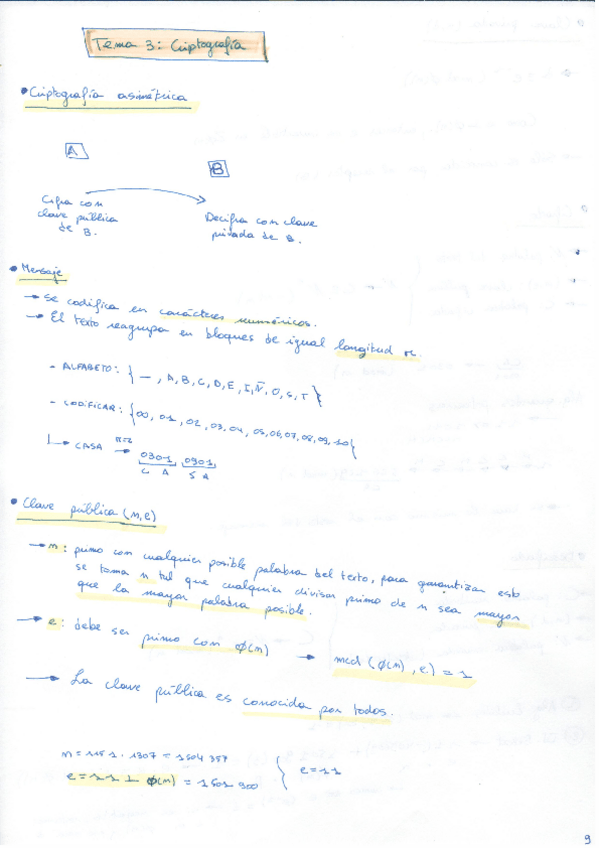 Tema 3: Criptografía
• Criptografía asimétrica
A
B
Cifra con
clave pública
de B.
Decifra con clave
privada de B.
• Mensaje
→ Se codifica en carácteres numéricos.
→ El texto reagrupa en bloques de igual longitud
- ALFABETO: { —, A, B, C, D, E, I, Ñ, O, S, T }
- CODIFICAR: {00, 01, 02, 03, 04, 05, 06, 07, 08, 09, 10}
→ CASA → 0301, 0901,
C A S A
• Clave pública (n, e)
→ n: primo con cualquier posible palabra del texto, para garantizar esto
se toma n tal que cualquier divisor primo de n sea mayor
que la mayor palabra posible.
→ e: debe ser primo con φ(n) → mcd (φ(n), e) = 1
→ La clave pública es conocida por todos.
1307 = 1504357
e = 11 ⊥ φ(n) = 1501900 } e = 11
9